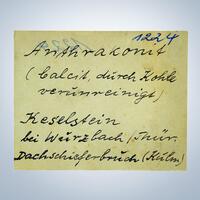 1224
Anthrakonit
(Calcit, durch Kohle
verunreinigt)
Keselstein
bei Wurzbach/Thür.
Dachschieferbruch (Kulm)